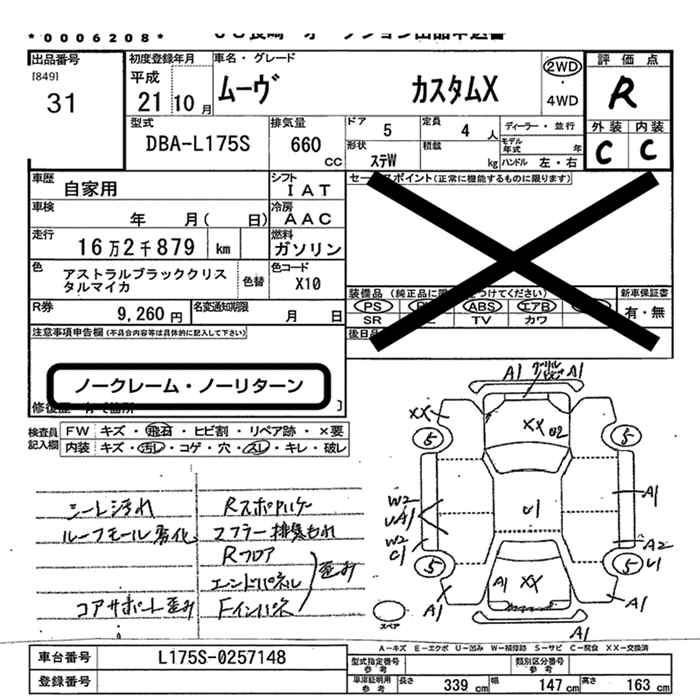 *0006208*
出品番号
[849]
31
初度登録年月
平成
21 10 月
車名・グレード
ムーヴ カスタムX
2WD
・
4WD
評価点
R
外装 内装
C C
型式
DBA-L175S
排気量
660
CC
ドア 5
定員 4 人
ディーラー・並行
形状 ステW
積載 kg
モデル年式 年
ハンドル 左・右
車歴 自家用
シフト IAT
車検 年 月( 日)
冷房 AAC
走行 16万2千879 km
燃料 ガソリン
色 アストラルブラッククリスタルマイカ
色替
色コード X10
R券 9,260円
名変通知期限 月 日
セールスポイント(正常に機能するものに限ります)
新車保証書
有・無
PS ABS エアB
SR TV カワ
注意事項申告欄(不具合内容等は具体的に記入して下さい)
ノークレーム・ノーリターン
検査員記入欄
FW キズ・飛石・ヒビ割・リペア跡・×要
内装 キズ・汚レ・コゲ・穴・スレ・キレ・破レ
シート汚れ
ルーフモール劣化
コアサポート歪み
マフラー排気もれ
Rフロア
エンドパネル
Fインパネ
歪み
A1 A1
XX
XX U2
5 5
W2
UA1
W2
C1
U1
A1
A2
U1
5 5
A1 XX
A1 A1
スペア
A-キズ E-エクボ U-凹み W-補修跡 S-サビ C-腐食 XX-交換済
車台番号 L175S-0257148
登録番号
型式指定番号 参考
類別区分番号 参考
車庫証明用 参考
長さ 339 cm
幅 147 cm
高さ 163 cm